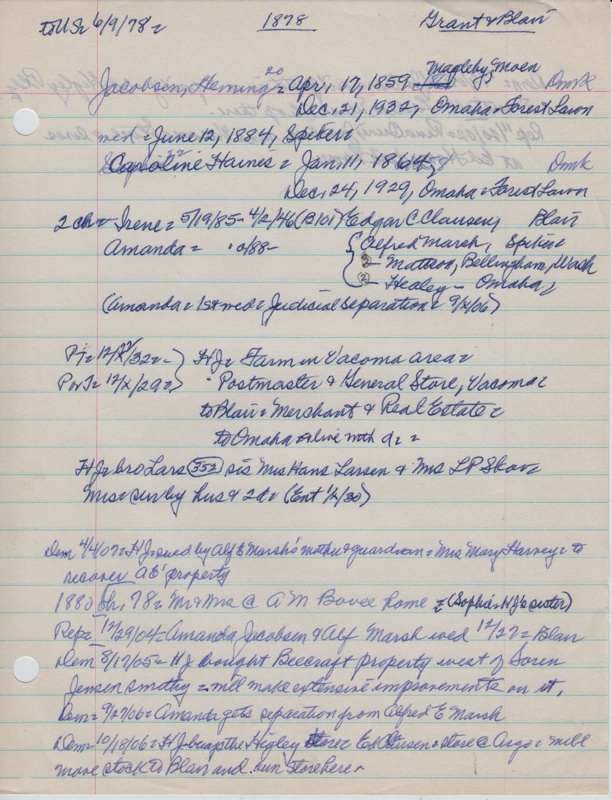 to U.S. 6/9/78 = 1878 Grant & Blair
20
Jacobsen, Heming = Apr. 17, 1859 Magleby, Moen Dmk
Dec. 21, 1932, Omaha = Forest Lawn
m = June 12, 1884, Spiker =
Caroline Haines = Jan. 11, 1864, Dmk
Dec. 24, 1929, Omaha = Forest Lawn
2 ch = Irene = 5/19/85 - 4/2/46 (B101) Edgar C Clausen, Blair
Amanda = /88- Alfred Marsh, Spiker
② - Mattson, Bellingham, Wash
② - Healey - Omaha
(Amanda = 1st wed = Judicial Separation = 9/x/06)
P = 12/ /32 = HJ = Farm in Vacoma area =
P = 12/x/29 = Postmaster & General Store, Vacoma =
to Blair = Merchant & Real Estate =
to Omaha = live with d =
HJ = bro Lars (352) sis Mrs Hans Larsen & Mrs LP Skov =
Mrs = surv by hus & 2d = (Ent 1/2/30)
Dem 4/4/07 = HJ sued by Alf E Marsh's mother & guardian = Mrs Mary Harvey = to
recover AE' property
1880 78 = Mr & Mrs @ A M Bovee home = (Sophie = HJ's sister)
Rep = 12/29/04 = Amanda Jacobsen & Alf Marsh wed 12/27 = Blair
Dem 8/17/05 = HJ bought Beecraft property west of Soren
Jensen smithy = will make extensive improvements on it.
Dem = 9/ /06 = Amanda gets separation from Alfred E Marsh
Dem = 10/18/06 = HJ buys the Higley store = Ed store @ Argo = will
move stock to Blair and run store here